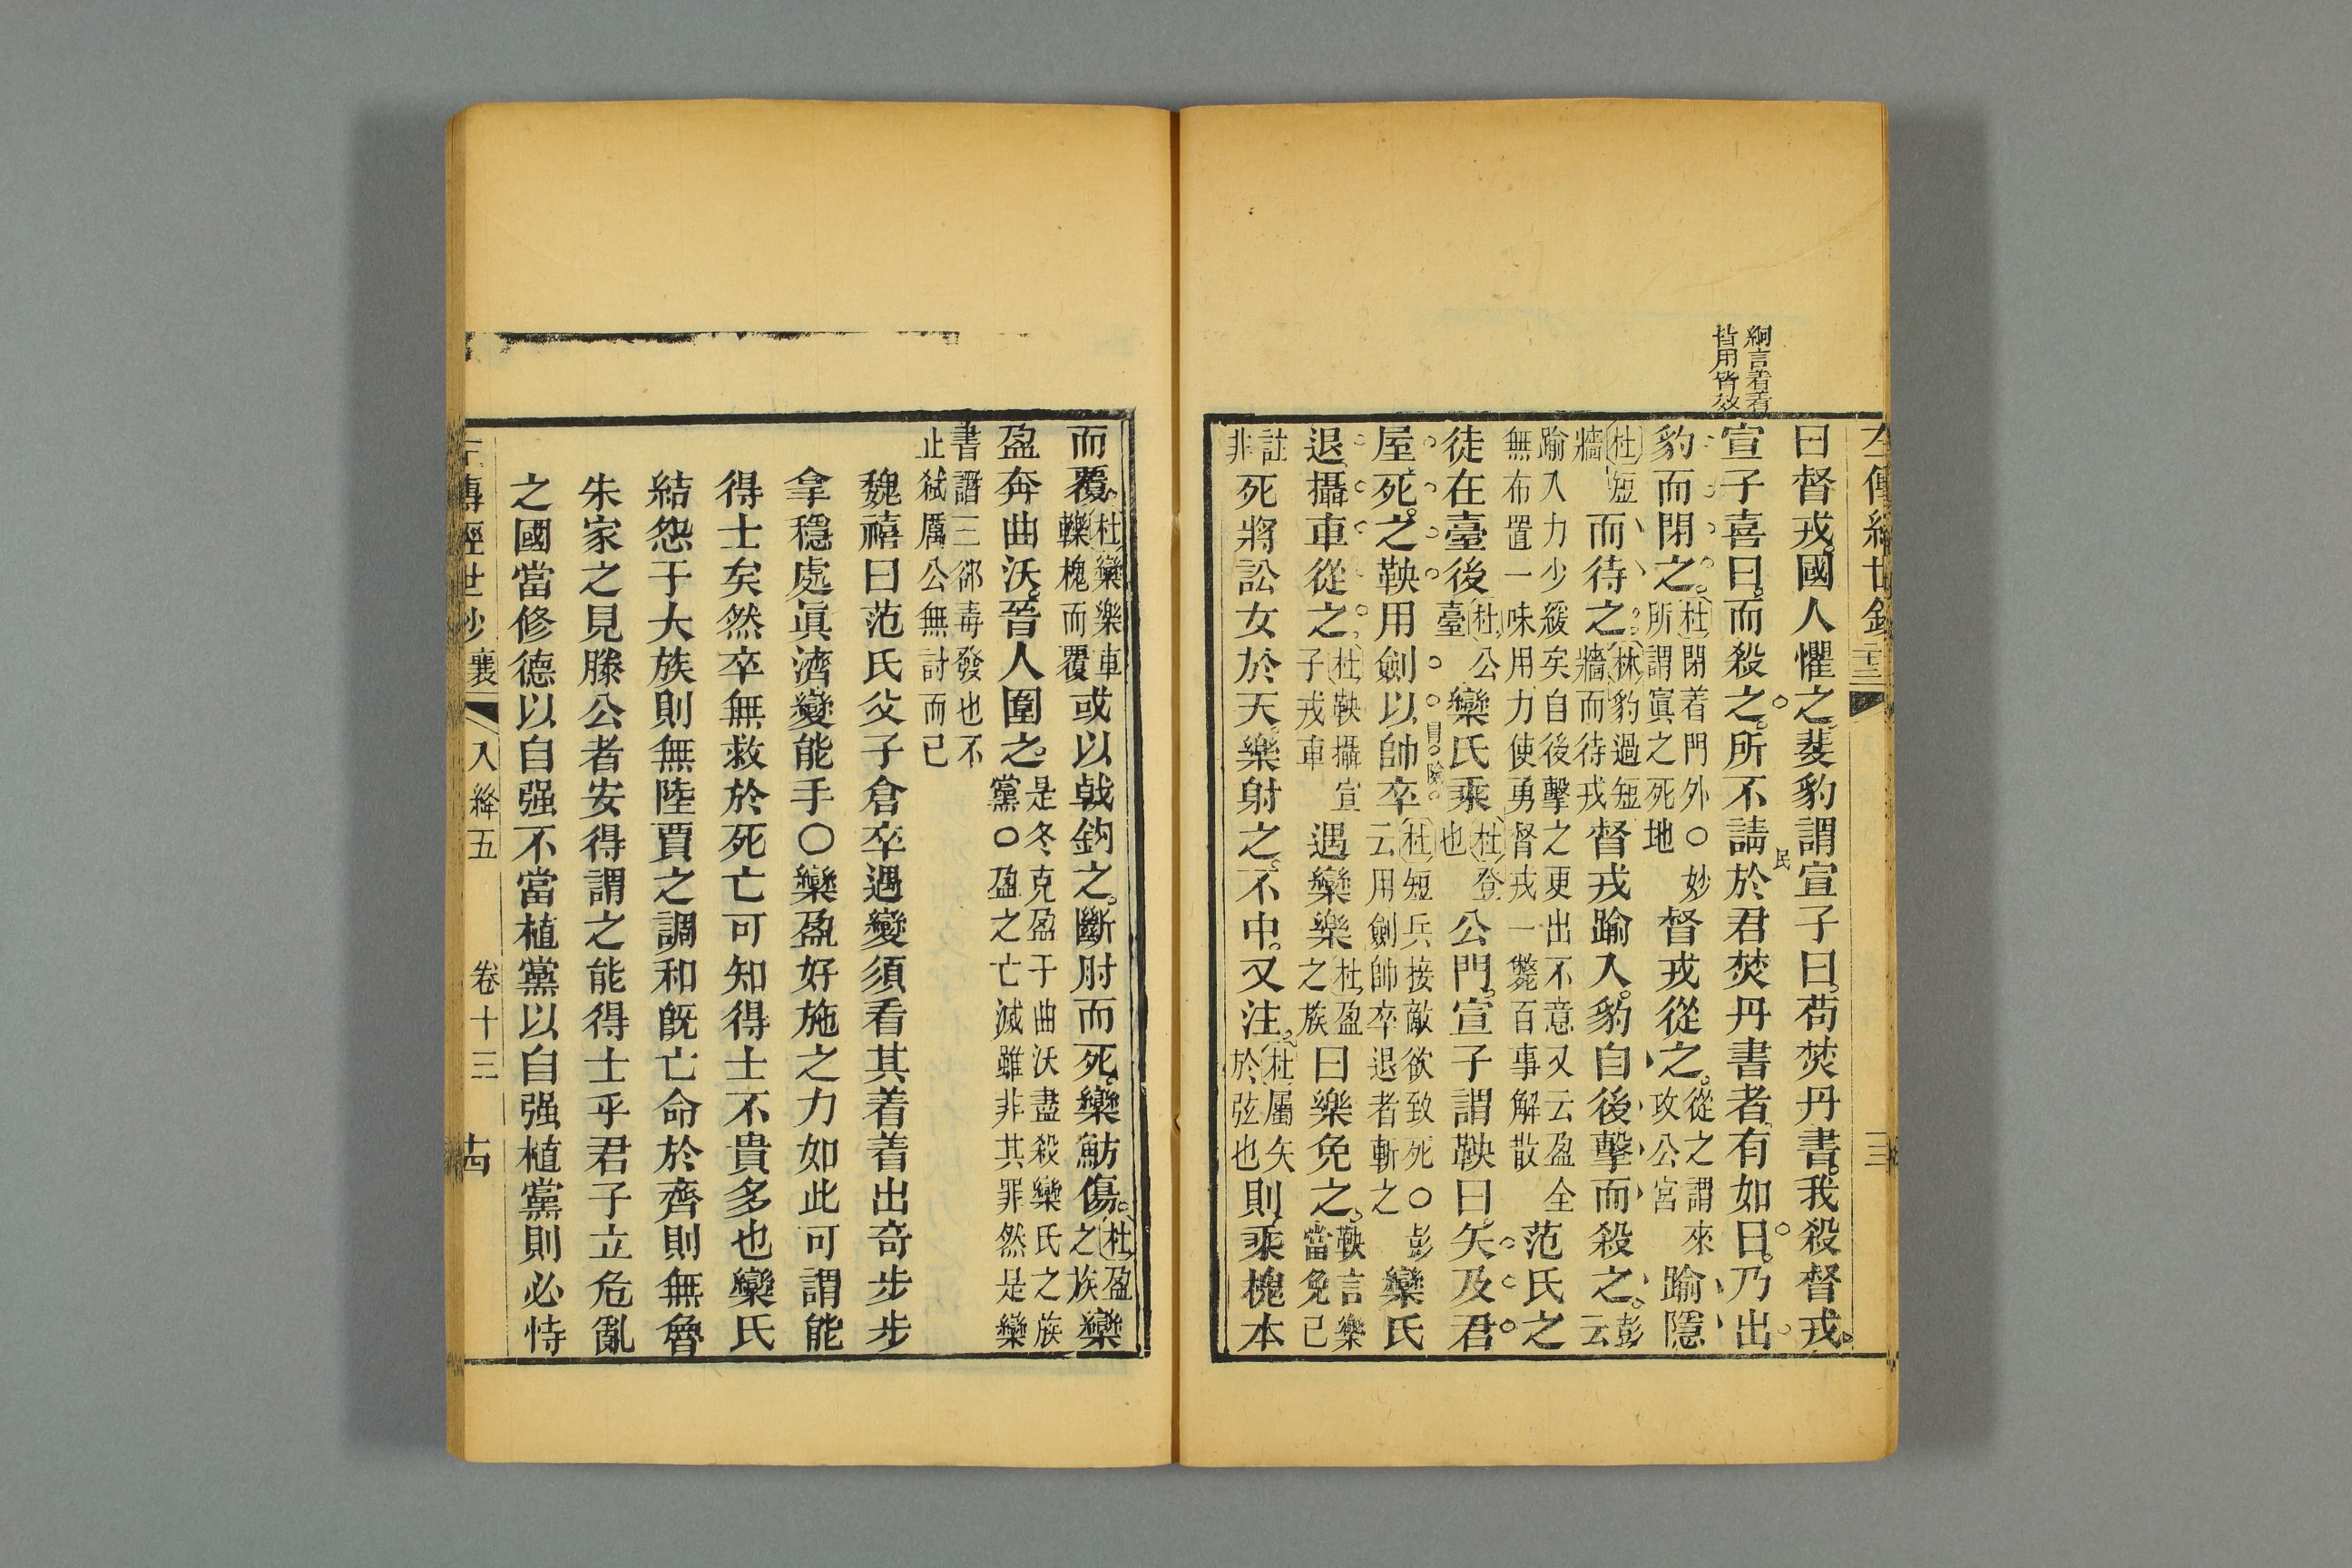 絅言着着
皆用皆效
左傳經世鈔
曰督戎國人懼之斐豹謂宣子曰苟焚丹書我殺督戎
宣子喜曰而殺之所不請於君焚丹書者有如日乃出
豹而閉之杜閉着門外○妙所謂寘之死地督戎從之從之謂來攻公宮踰隱
杜短牆而待之林豹過短牆而待戎督戎踰入豹自後擊而殺之彭云
踰入力少緩矣自後擊之更出不意又云盈全無布置一味用力使勇督戎一斃百事解散范氏之
徒在臺後杜公臺欒氏乘杜登也公門宣子謂鞅曰矢及君
冒險
屋死之鞅用劍以帥卒杜短兵接敵欲致死○彭云用劍帥卒退者斬之欒氏
退攝車從之杜鞅攝宣子戎車遇欒樂杜盈之族曰樂免之鞅言樂當免已
註非死將訟女於天樂射之不中又注杜屬矢於弦也則乘槐本
而覆杜欒樂車轢槐而覆或以戟鈎之斷肘而死欒魴傷杜盈之族欒
盈奔曲沃晉人圍之是冬克盈于曲沃盡殺欒氏之族黨○盈之亡滅雖非其罪然是欒
書譖三郤毒發也不止弑厲公無討而已
魏禧曰范氏父子倉卒遇變須看其着着出奇步步
拿穩處眞濟變能手○欒盈好施之力如此可謂能
得士矣然卒無救於死亡可知得士不貴多也欒氏
結怨于大族則無陸賈之調和旣亡命於齊則無魯
朱家之見滕公者安得謂之能得士乎君子立危亂
之國當修德以自强不當植黨以自强植黨則必恃
左傳經世鈔 襄 入絳五 卷十三 十四